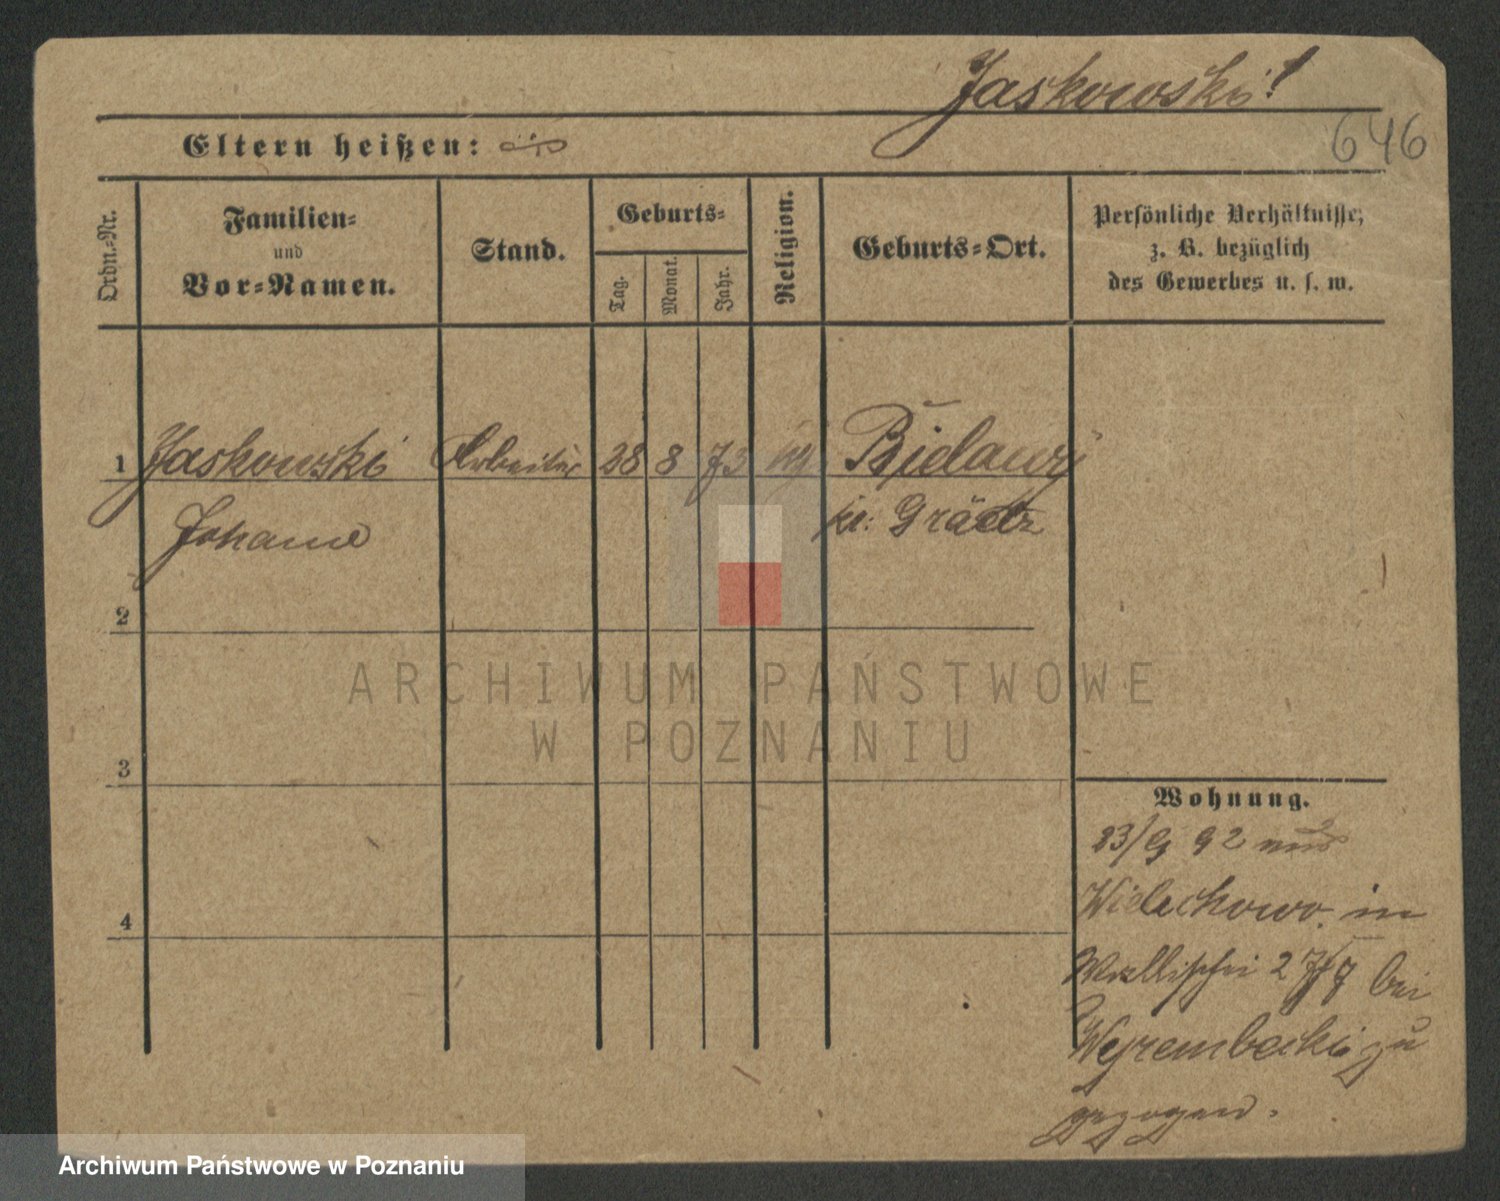 Jaskowski!
646
Eltern heißen:
Ordn.-Nr.
Familien-
und
Vor-Namen.
Stand.
Geburts-
Tag.
Monat.
Jahr.
Religion.
Geburts-Ort.
Persönliche Verhältnisse,
z. B. bezüglich
des Gewerbes u. s. w.
1 Jaskowski Arbeiter 28 8 73
Johann Kr: Grätz
2
3
4
Wohnung.
92 aus
Wielichowo in
Wallischei 2 bei
Wyrembecki zu
gezogen.
ARCHIWUM PAŃSTWOWE
W POZNANIU
Archiwum Państwowe w Poznaniu